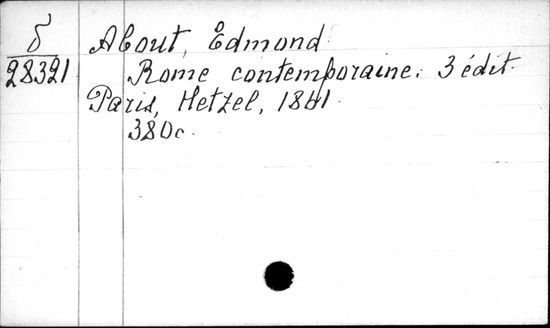 δ
28321
About, Edmond
Rome contemporaine. 3 édit.
Paris, Hetzel, 1861.
380c.